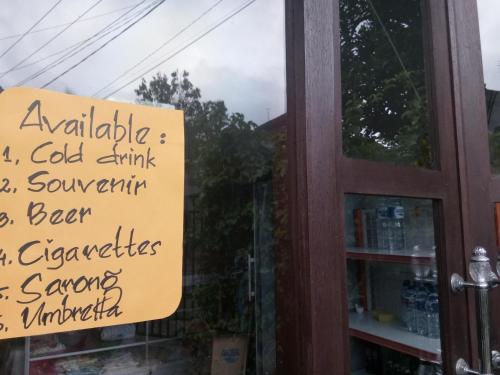 Available :
1, Cold drink
2. Souvenir
3. Beer
4. Cigarettes
5. Sarong
6. Umbretta